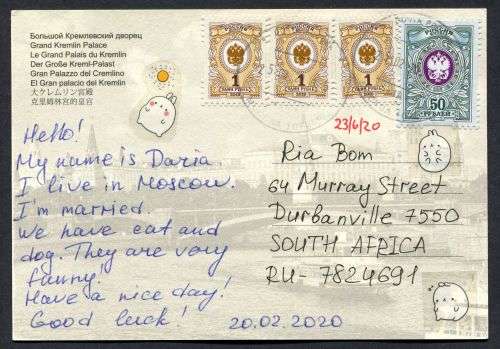 Большой Кремлевский дворец
Grand Kremlin Palace
Le Grand Palais du Kremlin
Der Große Kreml-Palast
Gran Palazzo del Cremlino
El Gran palacio del Kremlin
大クレムリン宮殿
克里姆林宮的皇宮
1
1
1
50
РУБЛЕЙ
23/6/20
Hello!
My name is Daria.
I live in Moscow.
I'm married.
We have cat and
dog. They are very
funny.
Have a nice day!
Good luck!
20.02.2020
Ria Bom
64 Murray Street
Durbanville 7550
SOUTH AFRICA
RU-7824691